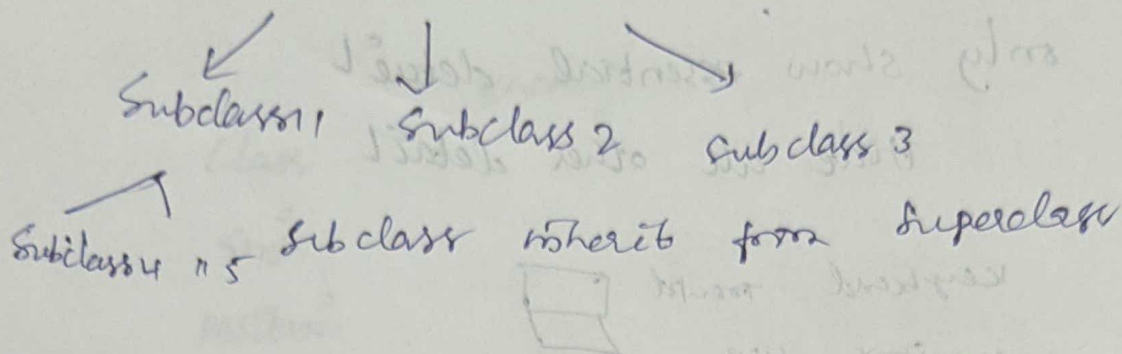 Subclass 1 Subclass 2 Subclass 3
Subclass 4 " 5 Subclass inherit from Superclass